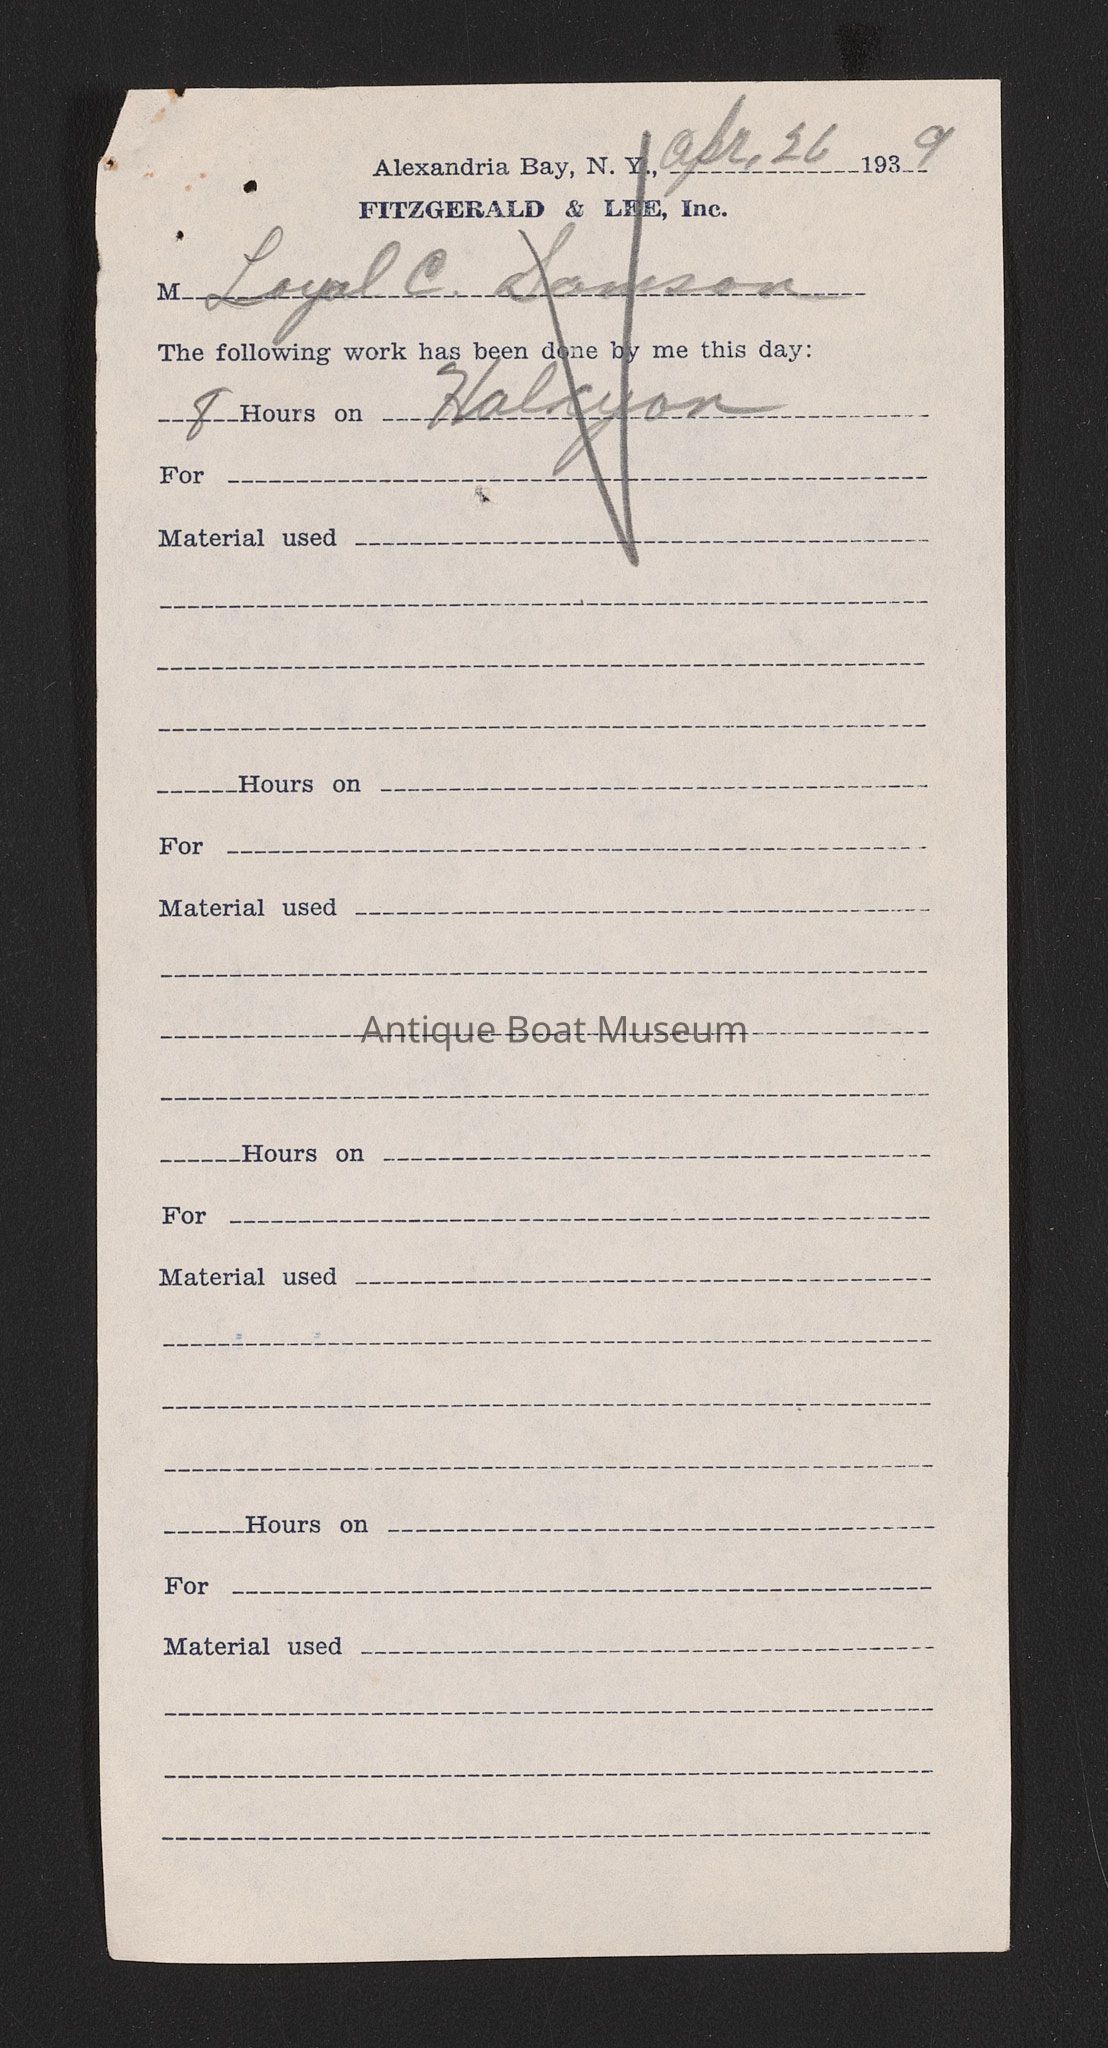 Alexandria Bay, N. Y., Apr. 26 1939
FITZGERALD & LEE, Inc.
M Loyal C. Samson
The following work has been done by me this day:
8 Hours on Halcyon
For
Material used
Hours on
For
Material used
Antique Boat Museum
Hours on
For
Material used
Hours on
For
Material used